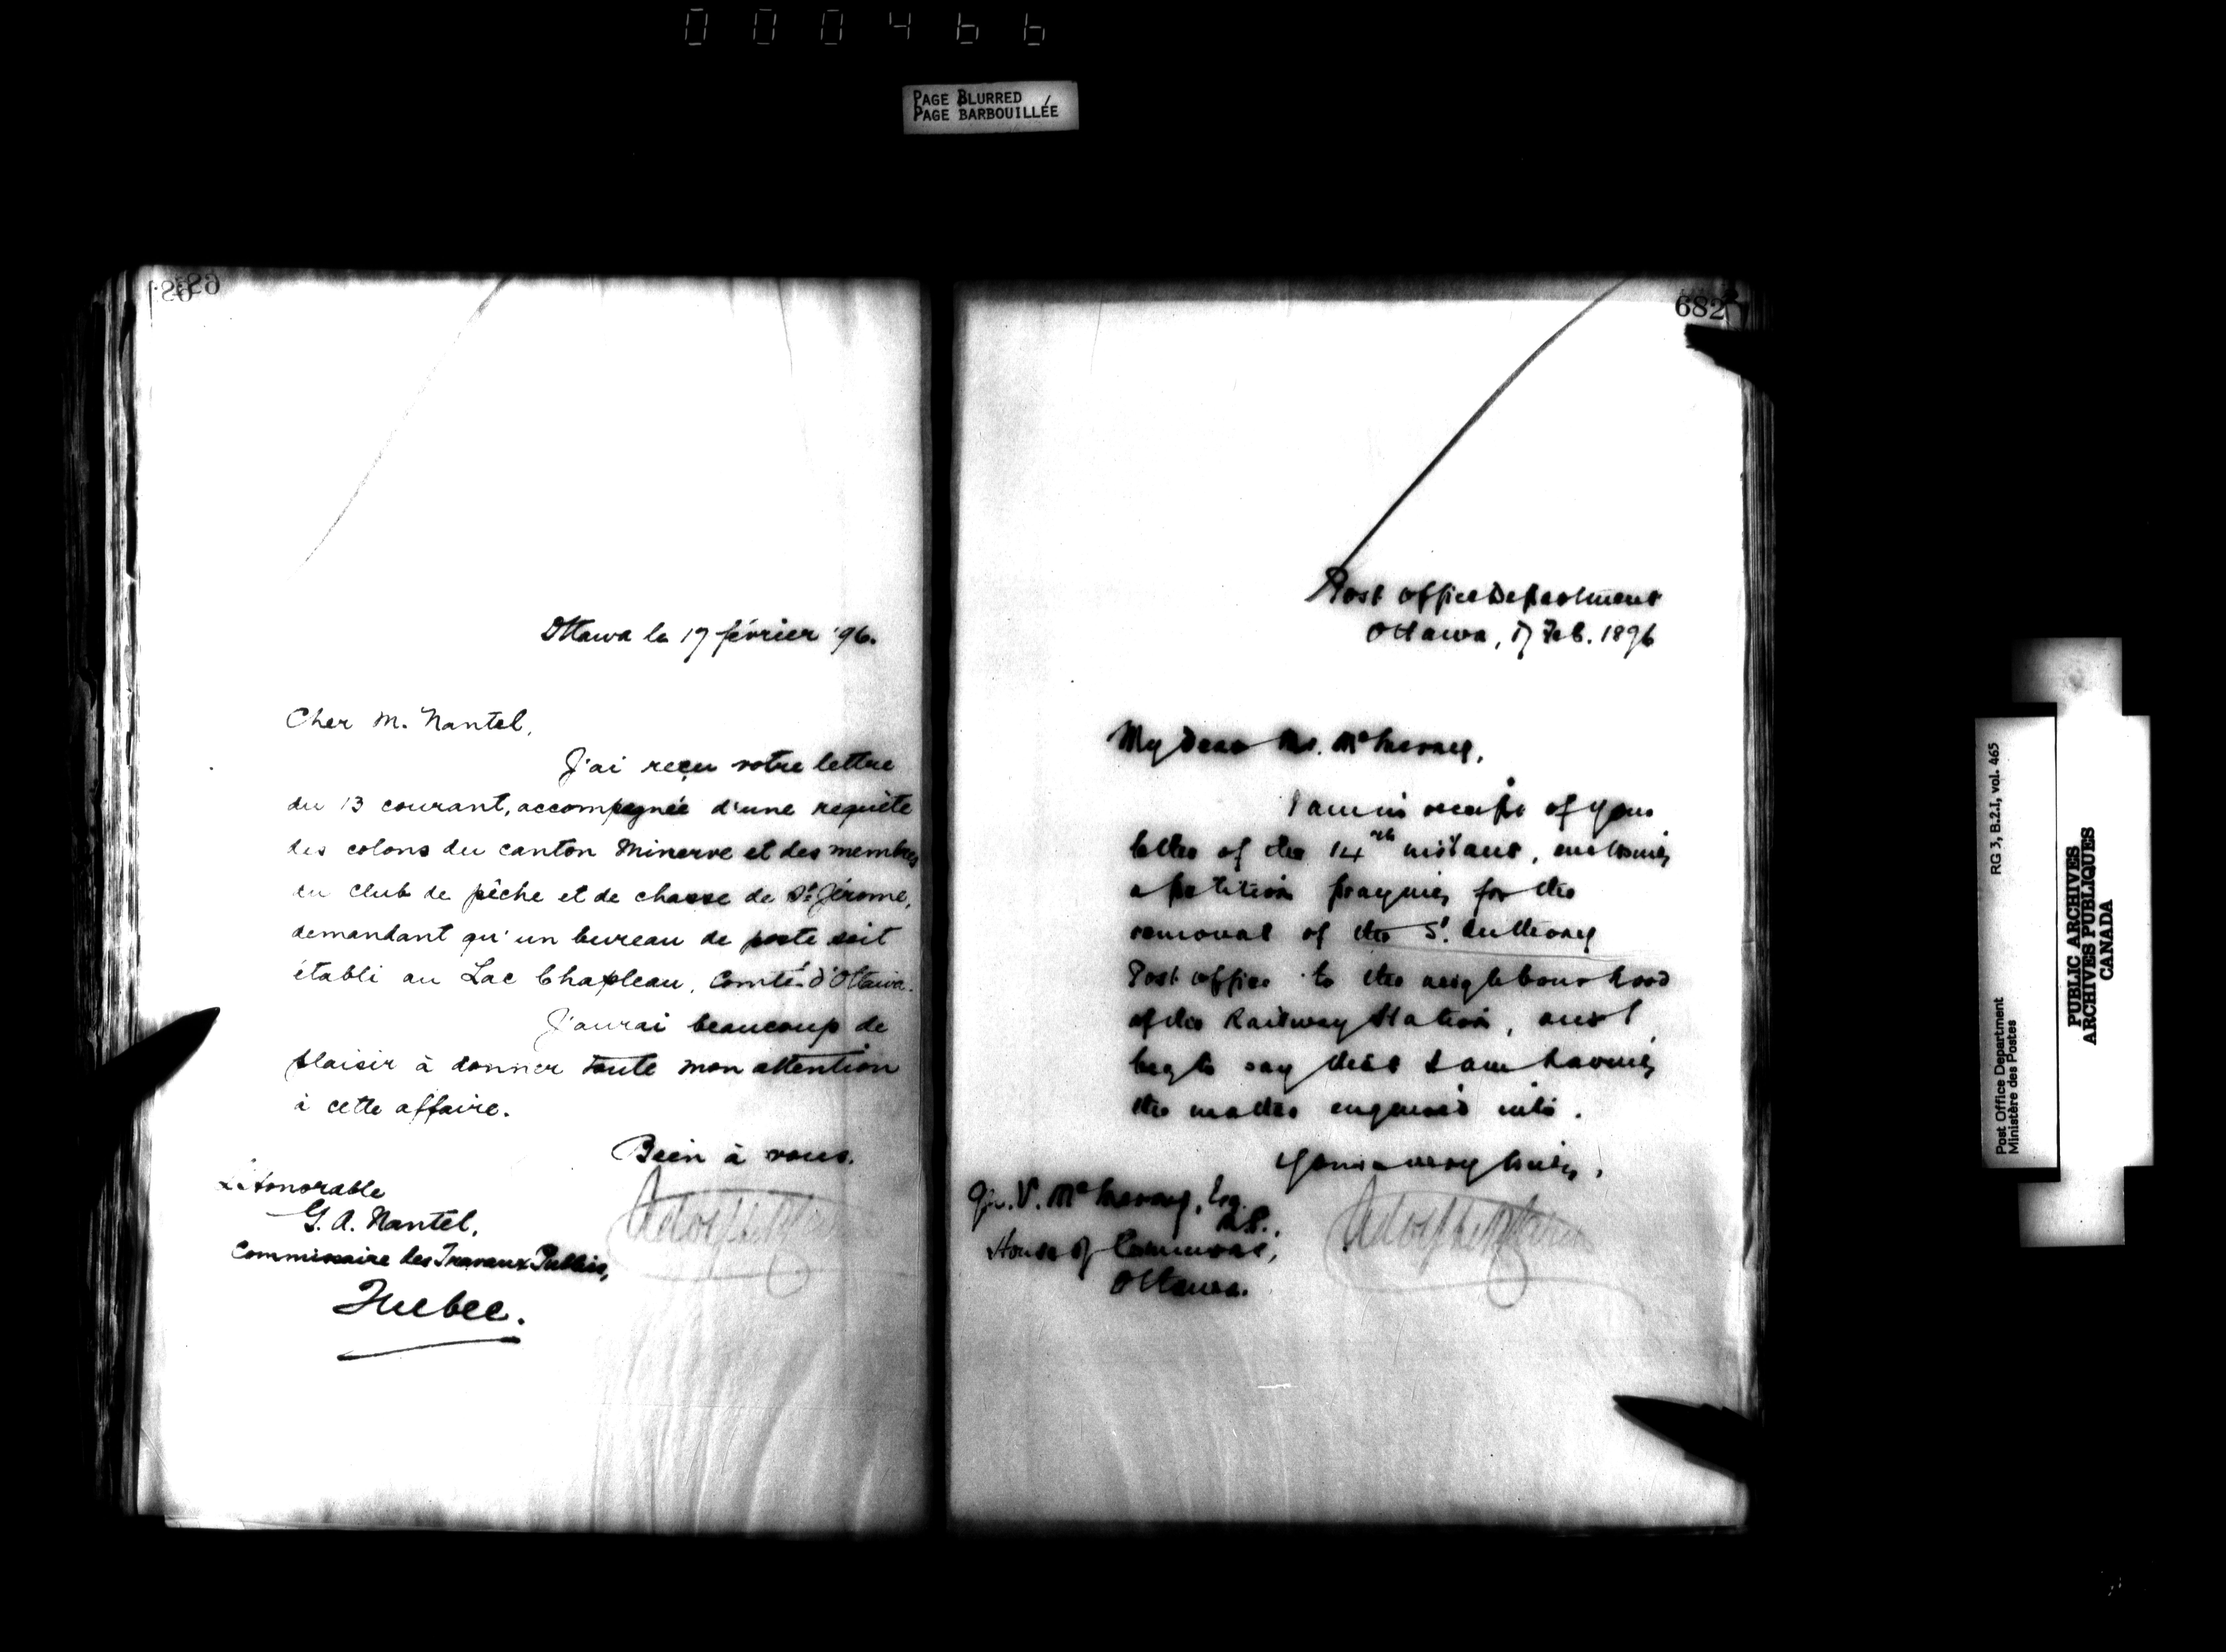 000466
PAGE BLURRED
PAGE BARBOUILLÉE
Ottawa le 17 février '96.
Cher M. Nantel,
J'ai reçu votre lettre
du 13 courant, accompagnée d'une requête
des colons du canton Minerve et des membres
du club de pêche et de chasse de St Jérome,
demandant qu'un bureau de poste soit
établi au Lac Chapleau, Comté d'Ottawa.
J'aurai beaucoup de
plaisir à donner toute mon attention
à cette affaire.
Bien à vous.
L'Honorable
G. A. Nantel,
Commissaire des Travaux Publics,
Quebec.
682
Post Office Department
Ottawa, 17 Feb. 1896
My Dear Mr. McInerney,
I am in receipt of your
letter of the 14th instant, enclosing
a petition praying for the
removal of the St. Anthony
Post Office to the neighbourhood
of the Railway Station, and I
beg to say that I am having
the matter enquired into.
Yours very truly,
Geo. V. McInerney, Esq.
M.P.,
House of Commons,
Ottawa.
Post Office Department
Ministère des Postes
RG 3, B.2.I, vol. 465
PUBLIC ARCHIVES
ARCHIVES PUBLIQUES
CANADA